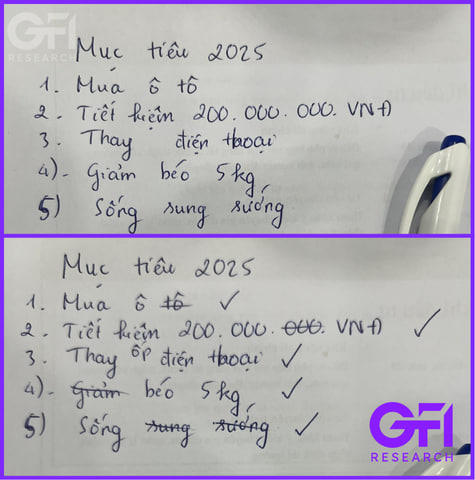 GFI
RESEARCH
Mục tiêu 2025
1. Mua ô tô
2. Tiết kiệm 200.000.000. VNĐ
3. Thay điện thoại
4). Giảm béo 5kg
5) Sống sung sướng
Mục tiêu 2025
1. Mua ô tô ✓
2. Tiết kiệm 200.000.000. VNĐ ✓
3. Thay ốp điện thoại ✓
4). Giảm béo 5kg ✓
5) Sống sung sướng ✓
GFI
RESEARCH